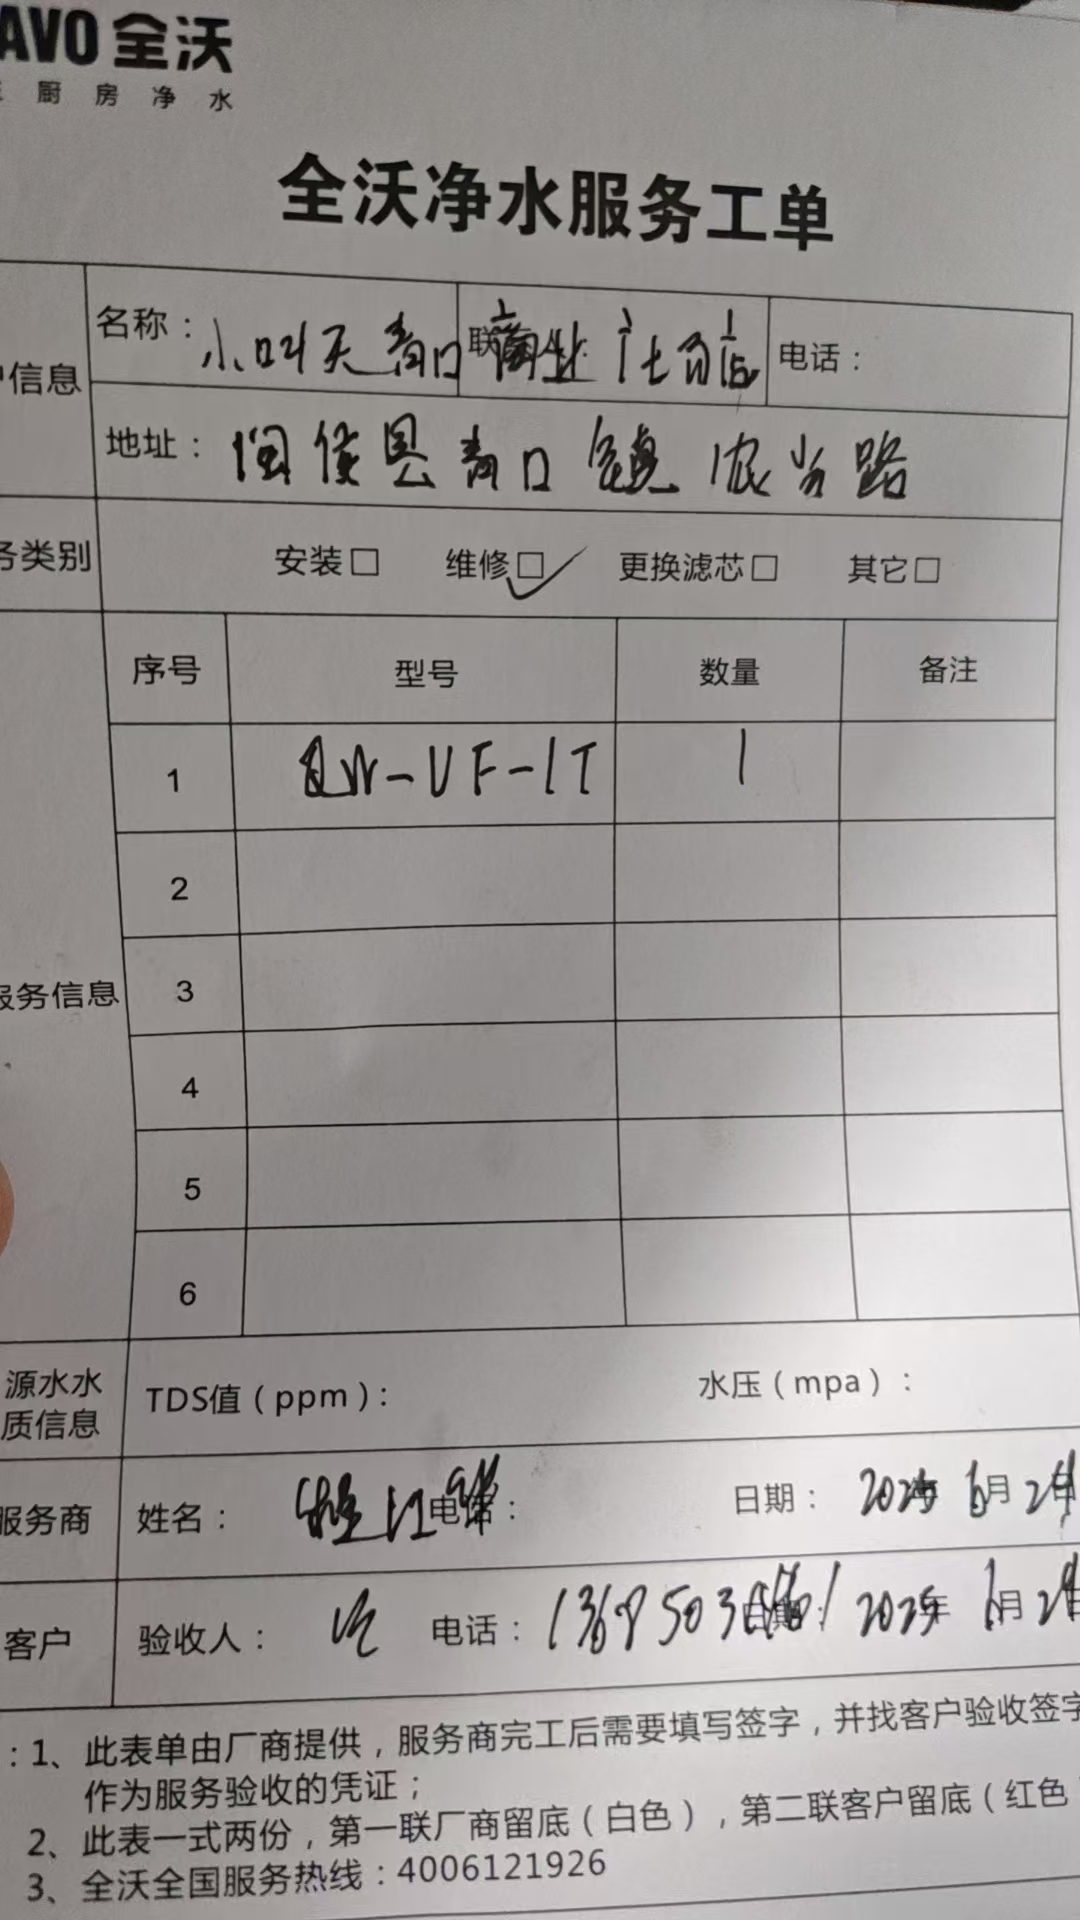 AVO 全沃
厨房净水
全沃净水服务工单
信息
名称：小叫天青口 商业广场店
电话：
地址：闽侯县青口镇 路
务类别
安装□ 维修□✓ 更换滤芯□ 其它□
序号 型号 数量 备注
1 QW-UF-1T 1
2
3
服务信息
4
5
6
源水水
质信息
TDS值（ppm）： 水压（mpa）：
服务商 姓名： 江 电话： 日期：2025年6月2
客户 验收人： 电话： 2025年6月2
：1、此表单由厂商提供，服务商完工后需要填写签字，并找客户验收签字
作为服务验收的凭证；
2、此表一式两份，第一联厂商留底（白色），第二联客户留底（红色
3、全沃全国服务热线：4006121926